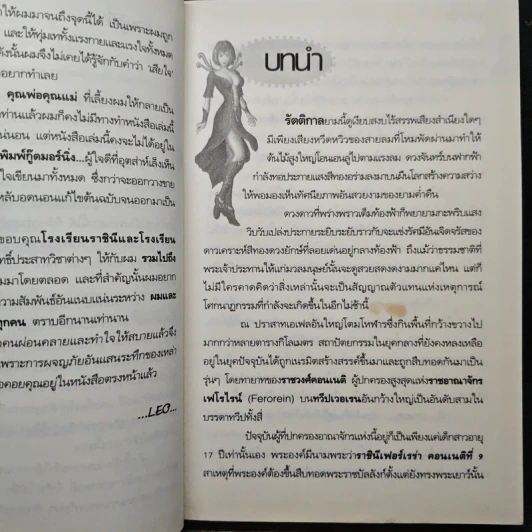 ให้ผมมาจนถึงจุดนี้ได้ เป็นเพราะผมถูก
และให้ทุ่มเททั้งแรงกายและแรงใจทั้งหมด
ดังนั้นผมจึงไม่เคยได้รู้จักกับคำว่า 'เสียใจ'
อยากทำเลย
คุณพ่อคุณแม่ ที่เลี้ยงผมให้กลายเป็น
ท่านแล้วผมก็คงไม่มีทางทำหนังสือเล่มนี้
น่นอน แต่หนังสือเล่มนี้คงจะไม่ได้อยู่ใน
พิมพ์กู๊ดมอร์นิ่ง...ผู้ใจดีที่อุตส่าห์เล็งเห็น
ใจเขียนมาทั้งหมด ซึ่งกว่าจะออกวางขาย
หลับอดนอนแก้ไขต้นฉบับจนออกมาเป็น
ขอบคุณโรงเรียนราชินีและโรงเรียน
ทธิ์ประสาทวิชาต่างๆ ให้กับผม รวมไปถึง
มมาโดยตลอด และที่สำคัญนั้นผมอยาก
ความสัมพันธ์อันแนบแน่นระหว่าง ผมและ
ทุกคน ตราบอีกนานเท่านาน
คนผ่อนคลายและทำใจให้สบายแล้วจึง
เพราะการผจญภัยอันแสนระทึกของเหล่า
อคอยคุณอยู่ในหนังสือตรงหน้าแล้ว
...LEO...
บทนำ
รัตติกาลยามนี้ดูเงียบสงบไร้สรรพเสียงสำเนียงใดๆ
มีเพียงเสียงหวีดหวิวของสายลมที่โหมพัดผ่านมาทำให้
ต้นไม้สูงใหญ่โอนเอนลู่ไปตามแรงลม ดวงจันทร์บนฟากฟ้า
กำลังทอประกายแสงสีทองอร่ามลงมาบนผืนโลกสร้างความสว่าง
ให้พอมองเห็นทัศนียภาพอันสวยงามของยามค่ำคืน
ดวงดาวที่พร่างพราวเต็มท้องฟ้าก็พยายามกะพริบแสง
วิบวับเปล่งประกายระยิบระยับราวกับจะแข่งรัศมีอันเจิดจรัสของ
ดาวเคราะห์สีทองดวงยักษ์ที่ลอยเด่นอยู่กลางท้องฟ้า ถึงแม้ว่าธรรมชาติที่
พระเจ้าประทานให้แก่มวลมนุษย์นั้นจะดูสวยสดงดงามมากแค่ไหน แต่ก็
ไม่มีใครคาดคิดว่าสิ่งเหล่านั้นจะเป็นสัญญาณตัวแทนแห่งเหตุการณ์
โศกนาฏกรรมที่กำลังจะเกิดขึ้นในอีกไม่ช้านี้
ณ ปราสาทเอเฟลอันใหญ่โตมโหฬารซึ่งกินพื้นที่กว้างขวางไป
มากกว่าหลายตารางกิโลเมตร สถาปัตยกรรมในยุคกลางที่ยังคงหลงเหลือ
อยู่ในยุคปัจจุบันได้ถูกเนรมิตสร้างสรรค์ขึ้นมาและถูกสืบทอดกันมาเป็น
รุ่นๆ โดยทายาทของราชวงศ์คอนเนติ ผู้ปกครองสูงสุดแห่งราชอาณาจักร
เฟโรไรน์ (Ferorein) บนทวีปเวอเรนอันกว้างใหญ่เป็นอันดับสามใน
บรรดาทวีปทั้งสี่
ปัจจุบันผู้ที่ปกครองอาณาจักรแห่งนี้อยู่ก็เพียงแค่เด็กสาวอายุ
17 ปีเท่านั้นเอง พระองค์มีนามพระว่าราชินีเฟอร์เรร่า คอนเนติที่ 9
สาเหตุที่พระองค์ต้องขึ้นสืบทอดพระราชบัลลังก์ตั้งแต่ยังทรงพระเยาว์นั้น